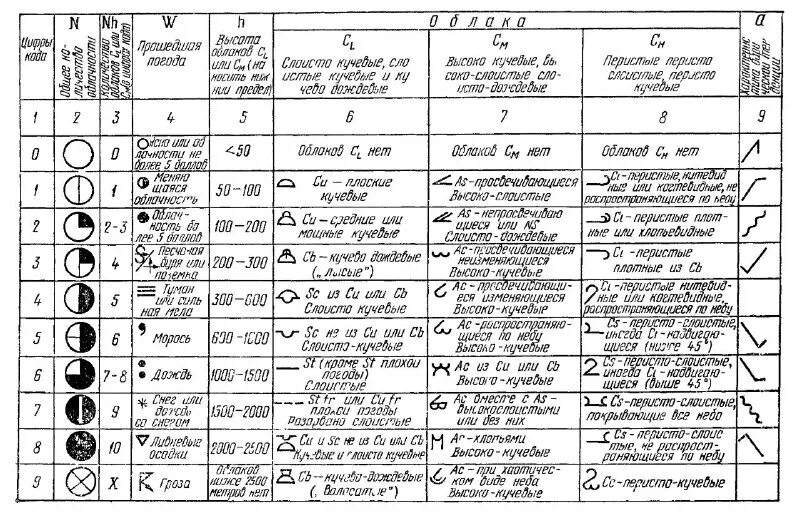 Облака
Цифры кода
N
Общее количество облачности
Nh
W
Прошедшая погода
h
Высота
облаков CL
или CM (на
носить ниж
ний предел)
CL
Слоисто кучевые, сло
истые кучевые и ку
чево дождевые
CM
Высоко кучевые, вы
соко-слоистые сло-
исто-дождевые
CH
Перистые перисто
слоистые, перисто
кучевые
a
1 2 3 4 5 6 7 8 9
0 0
лачности не
более 5 баллов
<50
Облаков CL нет
Облаков CM нет
Облаков CH нет
1 1
Меняю
щаяся
облачность
50-100
Cu – плоские
кучевые
As-просвечивающиеся
Высоко-слоистые
Ci-перистые, нитевид
ные или когтевидные, не
распространяющиеся по небу
2 2-3
Облач-
ность бо
лее 5 баллов
100-200
Cu – средние или
мощные кучевые
As-непросвечиваю
щиеся или NS
Слоисто-дождевые
Ci-перистые плот-
ные или хлопьевидные
3 4
Песчаная
буря или
поземка
200-300
Cb-кучево дождевые
(„лысые")
Ac-просвечивающиеся
неизменяющиеся
Высоко-кучевые
Ci-перистые
плотные из Cb
4 5
Туман
или силь
ная мгла
300-600
Sc из Cu или Cb
Слоисто кучевые
Ac-просвечивающи-
еся изменяющиеся
Высоко-кучевые
Ci-перистые нитевид-
ные или когтевидные,
распространяющиеся по небу
5 6
Морось
600-1000
Sc не из Cu или Cb
Слоисто-кучевые
Ac-распространяю-
щиеся по небу
Высоко-кучевые
Cs-перисто-слоистые,
иногда Ci-надвигаю-
щиеся (ниже 45°)
6 7-8
Дождь
1000-1500
St (кроме St плохой
погоды)
Слоистые
Ac из Cu или Cb
Высоко-кучевые
Cs-перисто-слоистые,
иногда Ci-надвигаю-
щиеся (выше 45°)
7 9
Снег или
дождь
со снегом
1500-2000
St fr или Cu fr
плохой погоды
Разорвано слоистые
Ac вместе с As-
высокослоистыми
или без них
Cs-перисто-слоистые,
покрывающие все небо
8 10
Ливневые
осадки
2000-2500
Cu и Sc не из Cu или Cb
Кучевые и слоисто кучевые
Ac-хлопьями
Высоко-кучевые
Cs-перисто-слоис
тые, не распрост-
раняющиеся по небу
9 X
Гроза
Облаков
ниже 2500
метров нет
Cb-кучево-дождевые
(„волосатые")
Ac-при хаотичес-
ком виде неба
Высоко-кучевые
Cc-перисто-кучевые